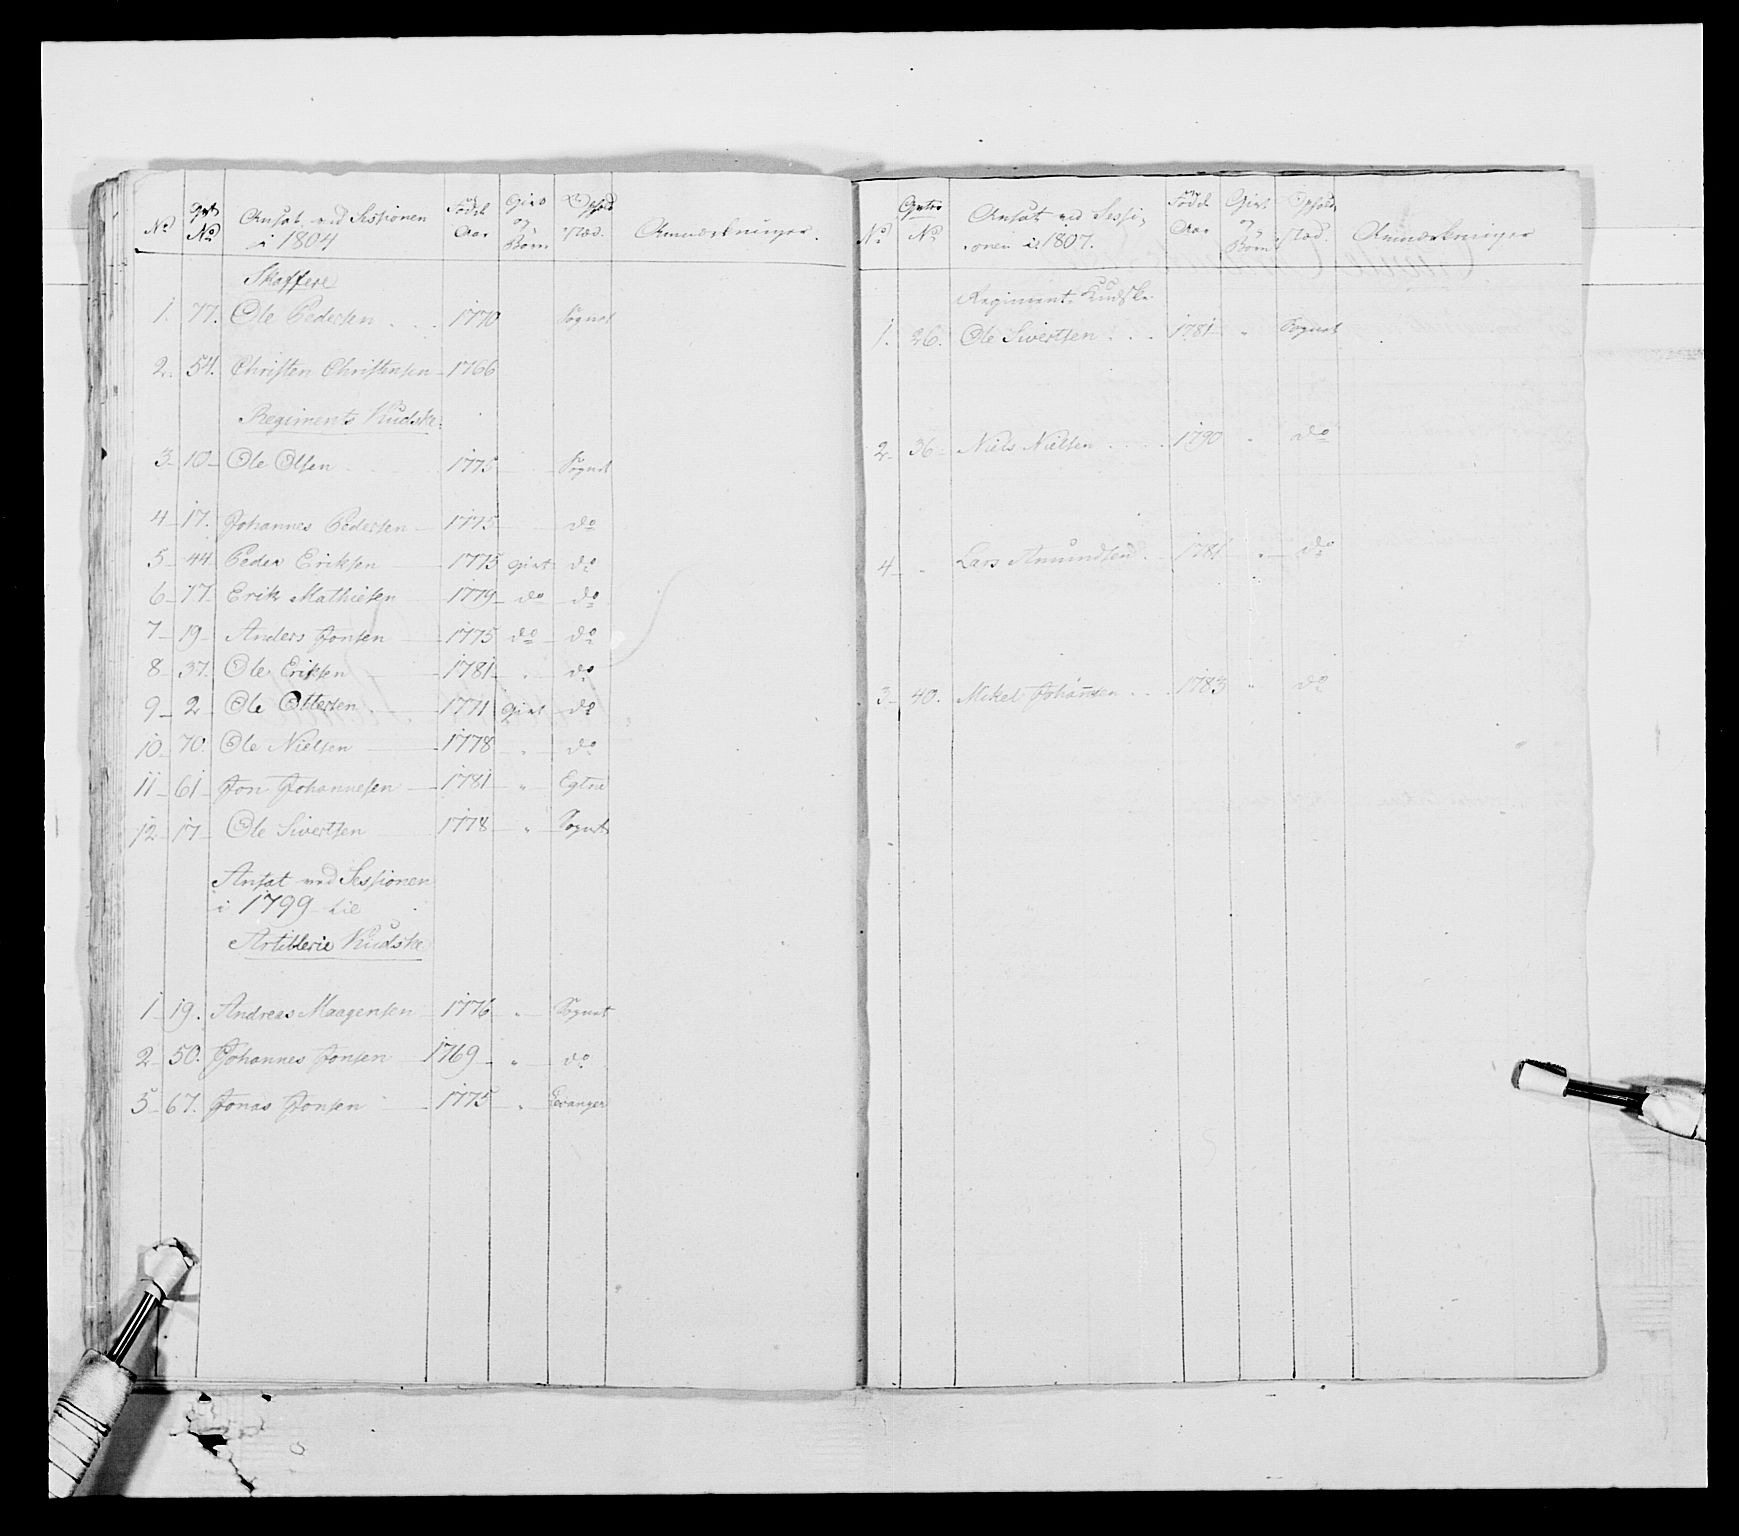 No
No
Ansat ved Sessionen
i 1804
Fødsel
Aar
Givt
og
Børn
Ophold
sted.
Anmærkninger.
Skaffere
1. 77. Ole Pedersen . . . 1770 Sognet
2. 54. Christen Christensen 1766
Regiments Kudske.
3 10 Ole Olsen 1775 Sognet
4 17. Johannes Pedersen 1775 do
5 44 Peder Eriksen 1775 Givt do
6 77 Erik Mathiesen 1779 do do
7 19 Anders Jonsen 1775 do do
8 37. Ole Eriksen 1781 " do
9 2 Ole Ottersen 1771 Givt do
10 70. Ole Nielsen 1778 " do
11 61 Jon Johannesen 1781 " Egtne
12 17 Ole Sivertsen 1778 " Sognet
Ansat ved Sessionen
i 1799 til
Artillerie Kudske
1 19. Andreas Maagensen 1776 " Sognet
2 50. Johannes Jonsen 1769 " do
3 67. Jonas Jonsen 1775 " Levanger
No
No
Ansat ved Sessi-
onen i 1807.
Fødsel
Aar
Givt
og
Børn
Ophold
sted.
Anmærkninger
Regiments Kudske
1. 26. Ole Sivertsen . . . 1781 " Sognet
2 36 Niels Nielsen . . . . 1790 " do
4 " Lars Amundsen . . 1781 " do
3 40. Mikel Johansen . . . 1783 " do